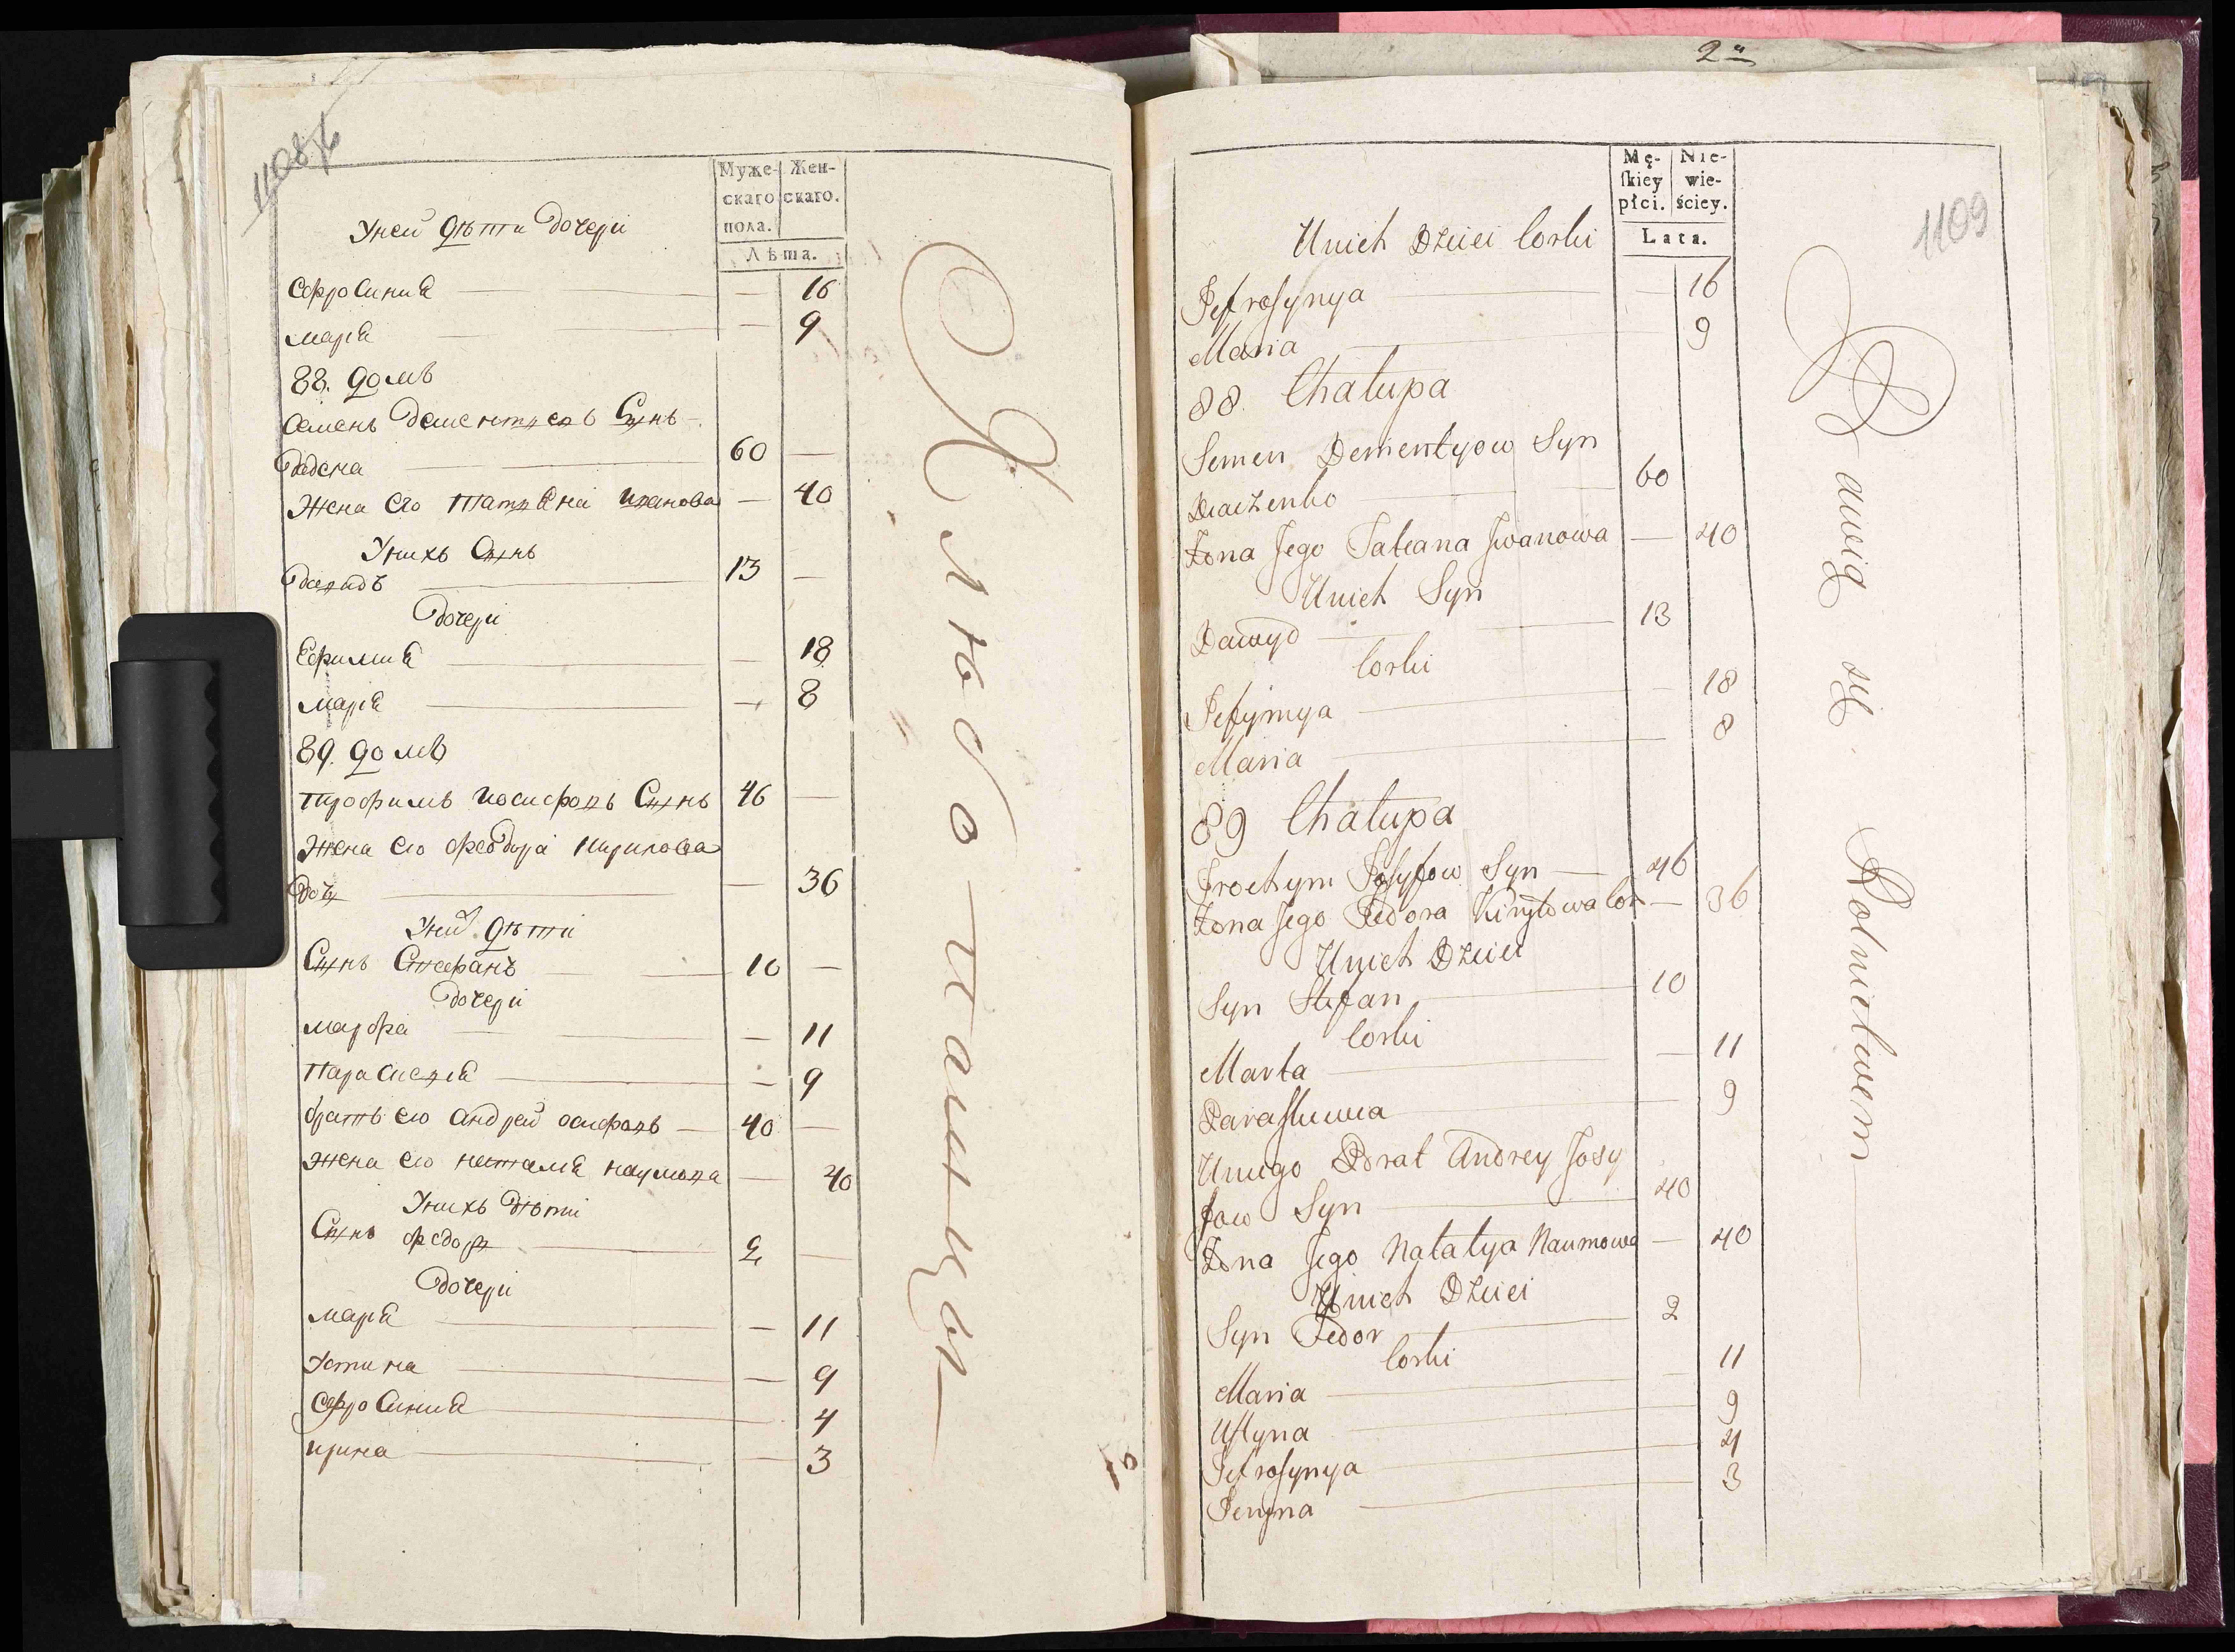 1108 об
Муже-
скаго
пола.
Жен-
скаго.
Лѣта.
Уней дѣти дочери
Ефросиния — 16
Мария — 9
88. домъ
Семенъ Дементиевъ Сынъ
60 —
Жена его Татияна Иванова — 40
Унихъ Сынъ
Давидъ 13 —
дочери
Ефимия — 18
Мария — 8
89. домъ
Трофимъ Иосифовъ Сынъ 46 —
Жена его Феодора Кирилова
дочь — 36
Уних дѣти
Сынъ Стефанъ 10 —
дочери
Марфа — 11
Парасковия — 9
братъ его Андрей осифовъ — 40 —
Жена его Наталия Наумова — 40
Унихъ дѣти
Сынъ Федоръ 2 —
дочери
Мария — 11
Устина — 9
Ефросиния — 4
Ирина — 3
Хлѣбо-пашцы
2
1109
Mę-
skiey
płci.
Nie-
wie-
ściey.
Lata.
Unich Dzieci Corki
Jefrosynya — 16
Maria 9
88 Chałupa
Semen Dementyow Syn
60
Żona Jego Tateana Jwanowa — 40
Unich Syn
Dawyd 13
Corki
Jefymya — 18
Maria 8
89 Chałupa
Trochym Josyfow Syn — 46
Żona Jego Fedora Kiryłowa Cor — 36
Unich Dzieci
Syn Stefan 10
Corki
Marta — 11
Paraskewia 9
Uniego Brat Andrey Josy
fow Syn 40
Żona Jego Natalya Naumowa — 40
Unich Dzieci
Syn Fedor 2
Corki
Maria — 11
Ustyna 9
Jefrosynya 4
Jeryna 3
Bawią się Rolnictwem